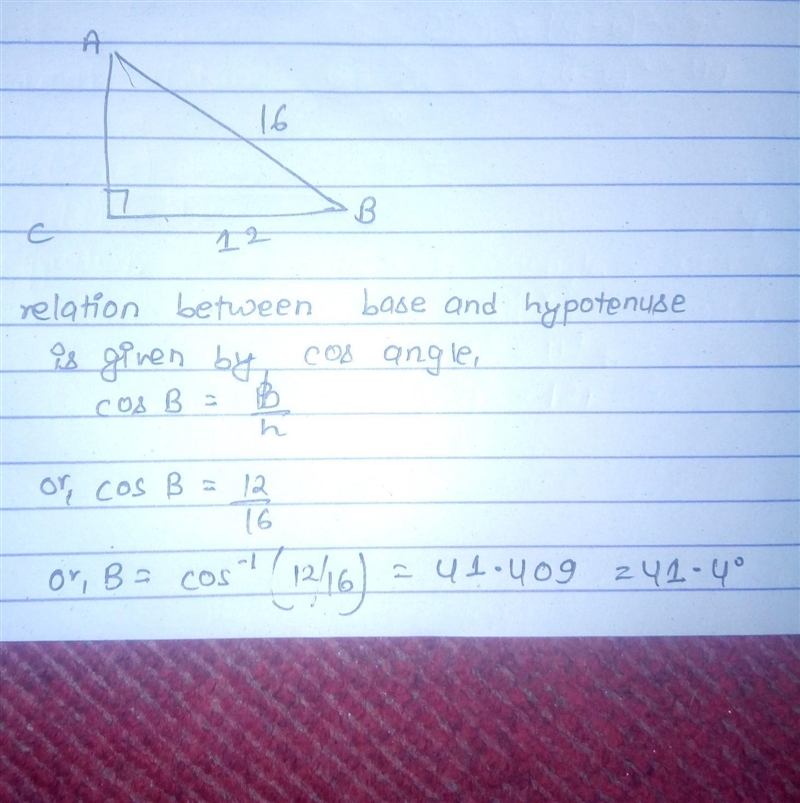 A
16
B
C
12
relation between base and hypotenuse
is given by cos angle,
cos B = b/h
or, cos B = 12/16
or, B = cos⁻¹ (12/16) = 41.409 = 41.4°